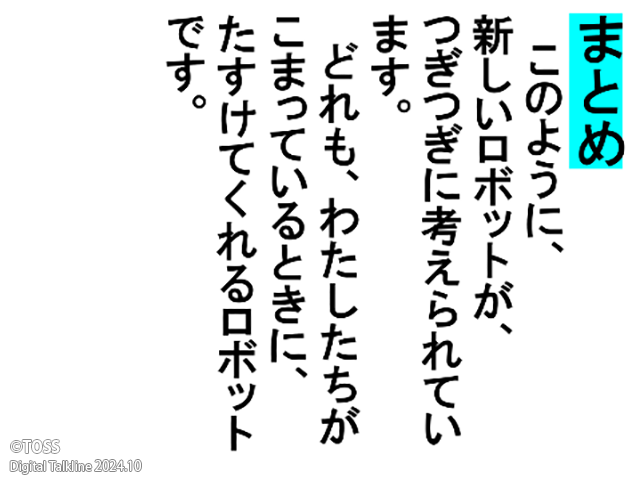 まとめ
このように、
新しいロボットが、
つぎつぎに考えられてい
ます。
どれも、わたしたちが
こまっているときに、
たすけてくれるロボット
です。
©TOSS
Digital Talkline 2024.10